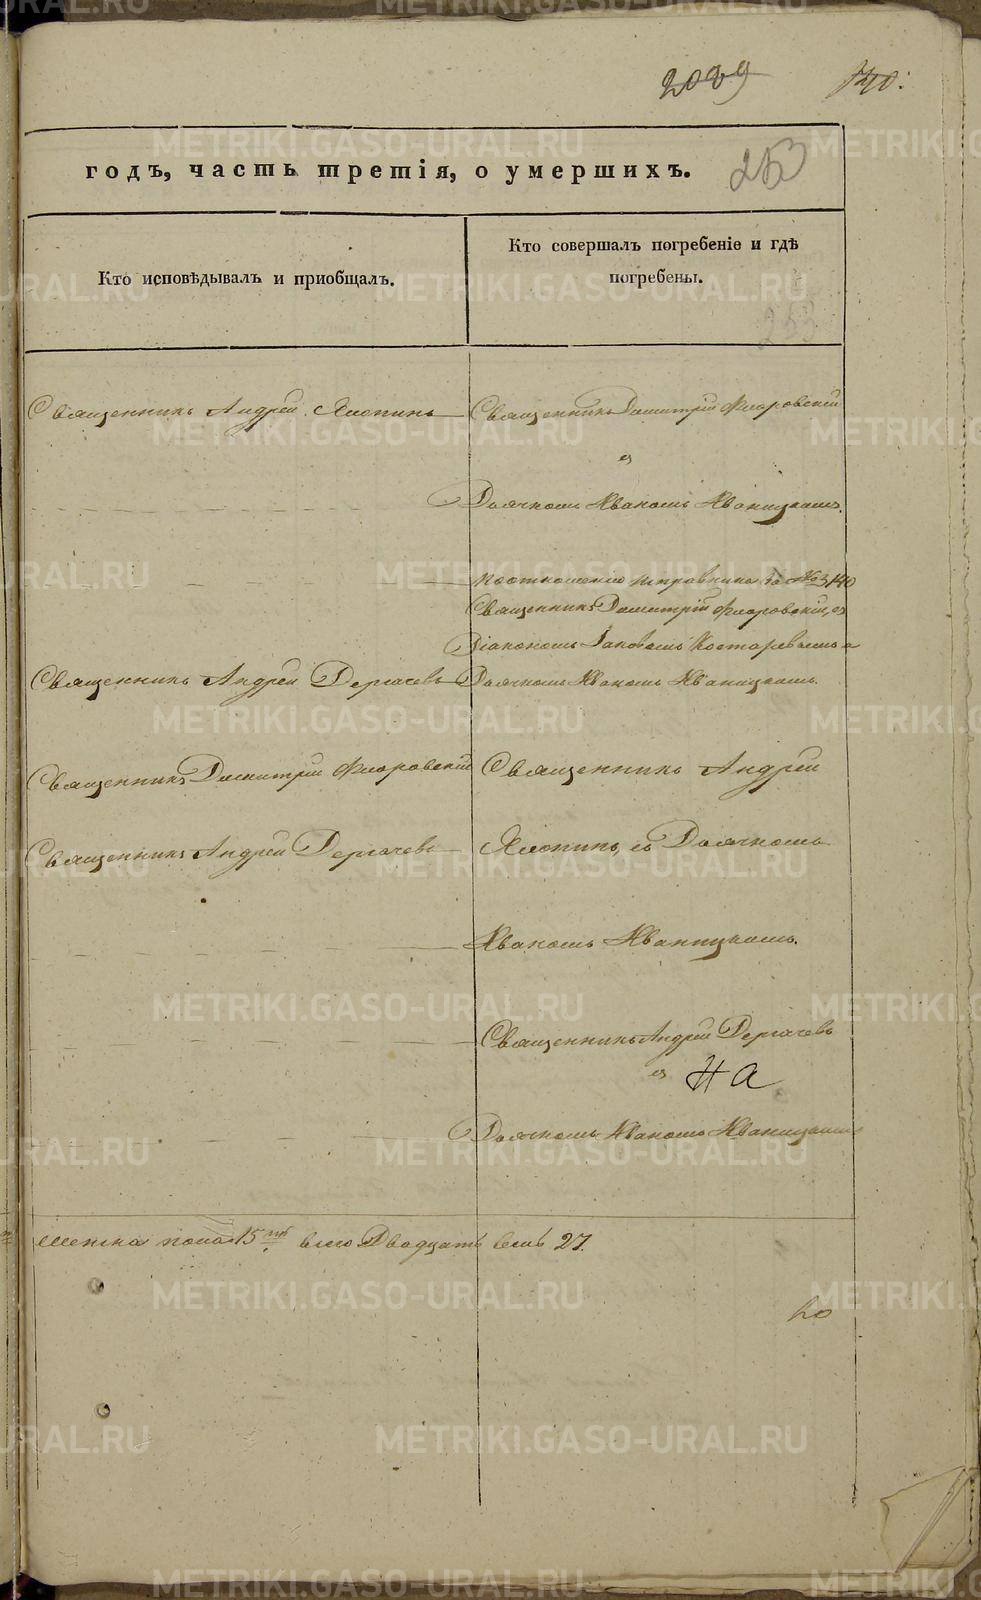 2039 340.
годъ, часть третія, о умершихъ.
253
Кто исповѣдывалъ и пріобщалъ.
Кто совершалъ погребеніе и гдѣ
погребены.
253
Священникъ Андрей Ялонинъ Священникъ Димитрій Флоровскій
съ
Дьячкомъ Иваномъ Иваницкимъ.
По отношенію за № 3140
Священникъ Димитрій Флоровскій, съ
Діакономъ Іаковомъ Костаревымъ и
Священникъ Андрей Дергачевъ Дьячкомъ Иваномъ Иваницкимъ.
Священникъ Димитрій Флоровскій Священникъ Андрей
Священникъ Андрей Дергачевъ Ялонинъ, съ Дьячкомъ
Иваномъ Иваницкимъ.
Священникъ Андрей Дергачевъ
съ НА
Дьячкомъ Иваномъ Иваницкимъ
женска пола 15ть всего Двадцать семь 27.
METRIKI.GASO-URAL.RU